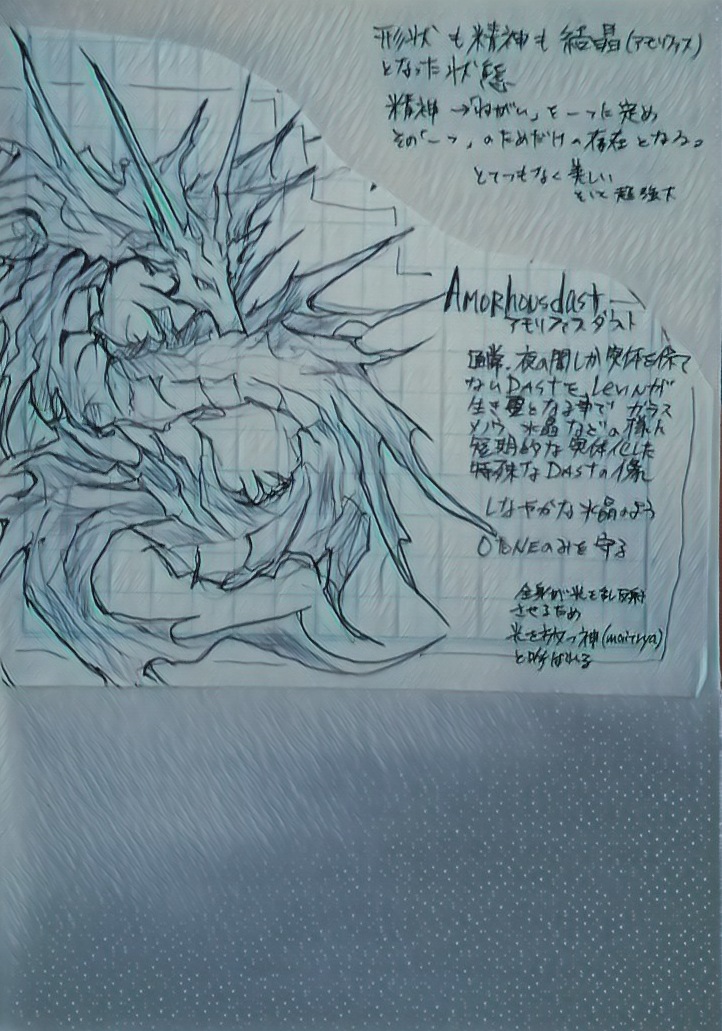 形状も精神も結晶(アモリファス)
となった状態
精神→「ねがい」を一つに定め
その「一つ」のためだけの存在となる。
とてつもなく美しい
そして超強大
Amorhousdast
アモリファスダスト
通常、夜の間しか実体を保て
ないDASTを、Levinが
生き聖となる事で ガラス
メノウ、水晶などの様に
短期的な実体化した
特殊なDASTの様
しなやかな水晶のよう
のみを守る
全身が光を乱反射
させるため
光を放つ神(maitrya)
と呼ばれる